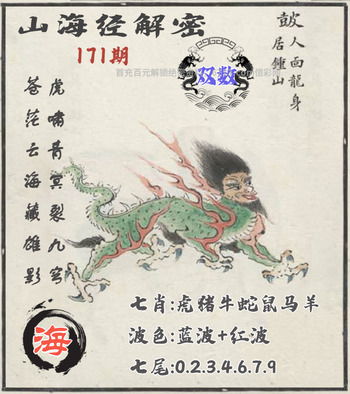 山海经解密
171期
双数
鼓
人面龍身
居鍾山
虎啸青冥裂九穹
苍茫云海藏雄影
七肖:虎猪牛蛇鼠马羊
波色:蓝波+红波
七尾:0.2.3.4.6.7.9
海